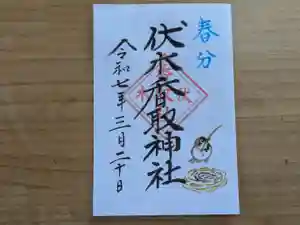 春分
伏木香取神社
令和七年三月二十日